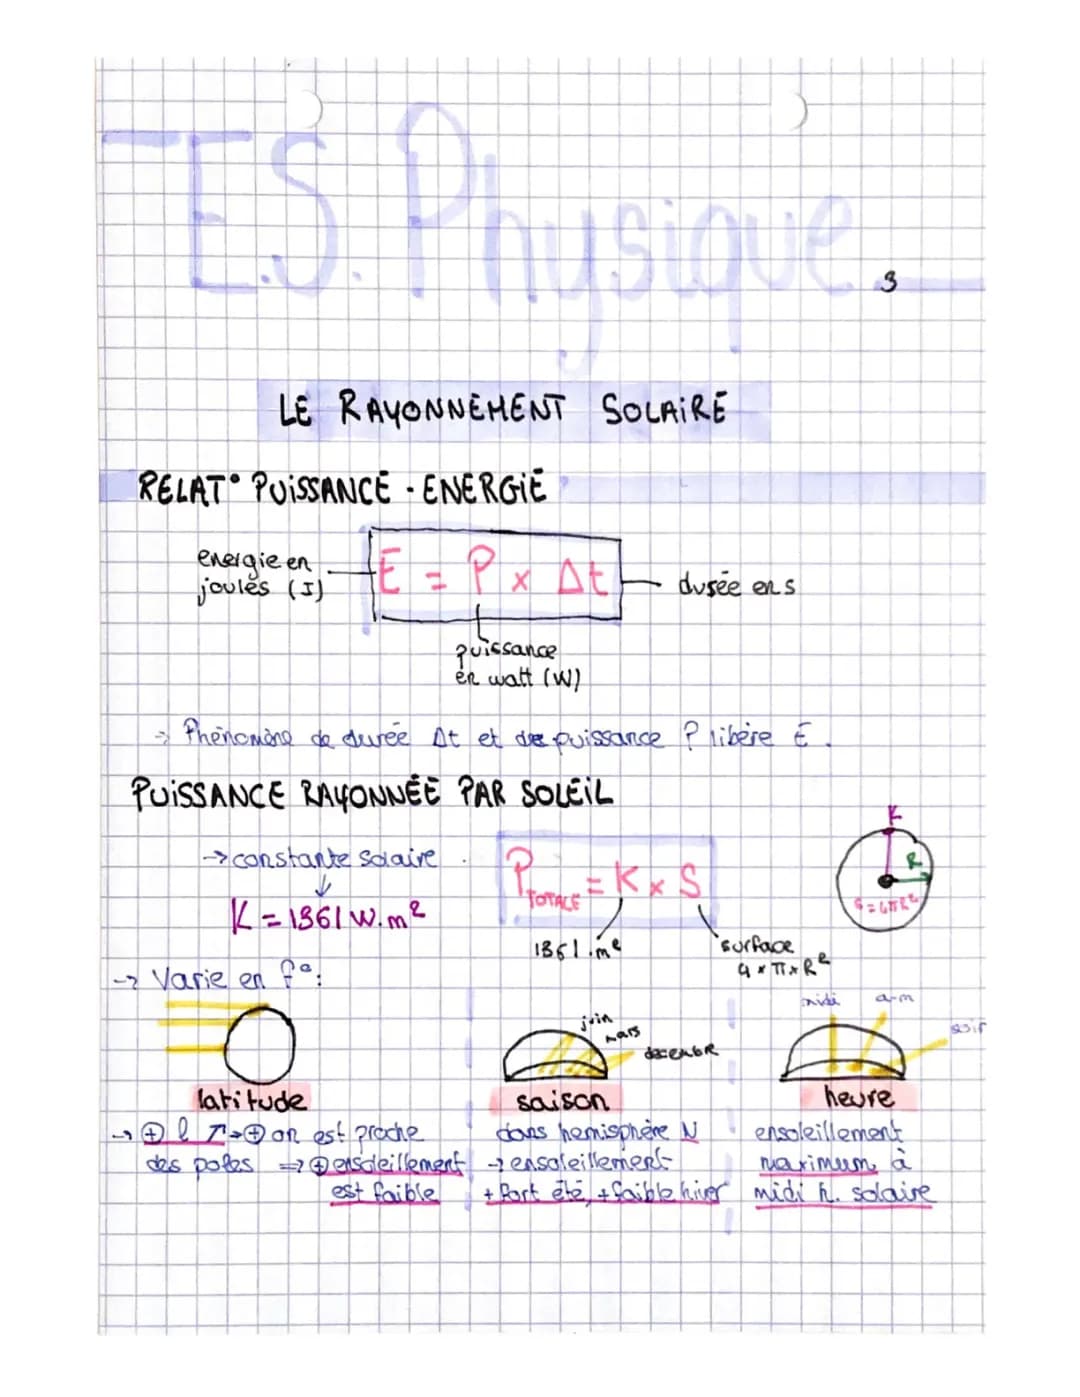 E.S. Physique
3
LE RAYONNEMENT SOLAIRE
RELAT° PUISSANCE - ENERGIE
energie en
joules (J)
E = P x Δt
durée en s
puissance
en watt (W)
→ Phénomène de durée Δt et de puissance P libère E.
PUISSANCE RAYONNÉE PAR SOLEIL
→ constante solaire
K = 1361 W.m²
P TOTALE = K x S
1361.m²
surface
4 x π x R²
K
R
S = 4πR²
→ Varie en f°:
latitude
→ ⊕ l ↗ → ⊕ on est proche
des poles ⇒ ⊕ ensoleillement
est faible
juin
mars
decembre
saison
dans hemisphère N
→ ensoleillement
+ fort été, + faible hiver
midi
a-m
soir
heure
ensoleillement
maximum à
midi h. solaire